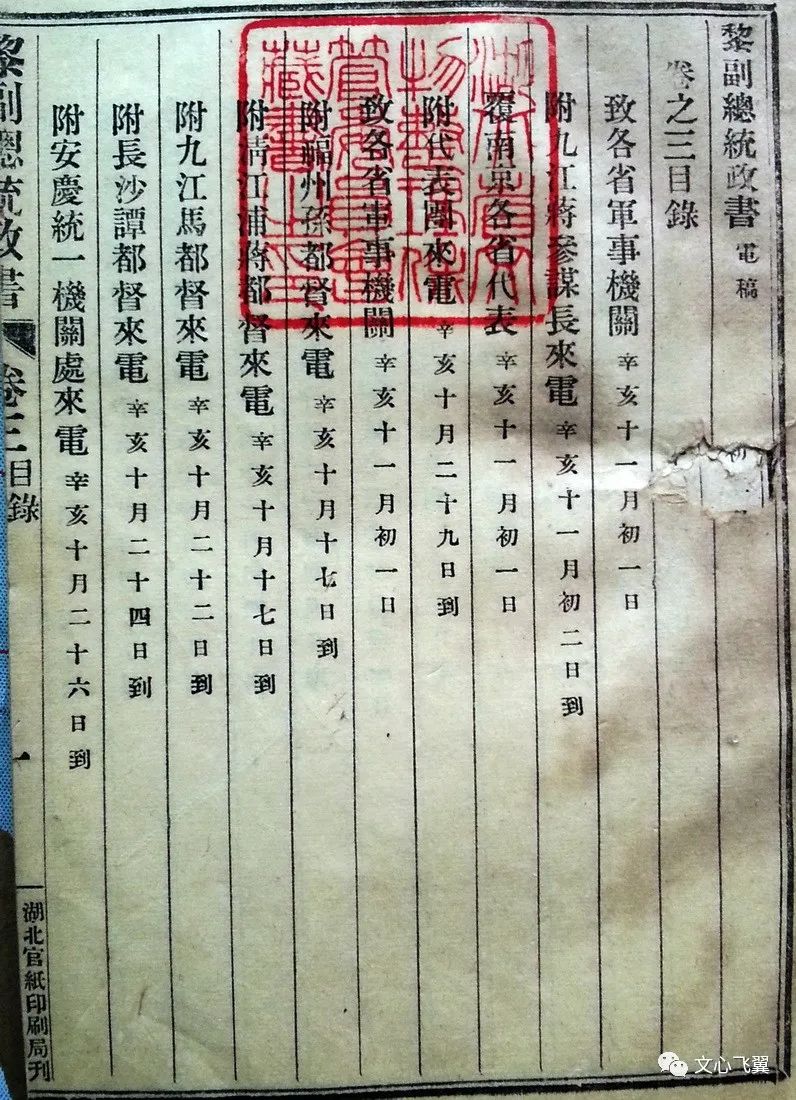 黎副總統政書 電稿
卷之三目錄
致各省軍事機關 辛亥十一月初一日
附九江蔣參謀長來電 辛亥十一月初二日到
覆南京各省代表 辛亥十一月初一日
附代表團來電 辛亥十月二十九日到
致各省軍事機關 辛亥十一月初一日
附福州孫都督來電 辛亥十月十七日到
附清江浦蔣都督來電 辛亥十月十七日到
附九江馬都督來電 辛亥十月二十二日到
附長沙譚都督來電 辛亥十月二十四日到
附安慶統一機關處來電 辛亥十月二十六日到
黎副總統政書 卷三目錄 一
湖北官紙印刷局刊
文心飞翼